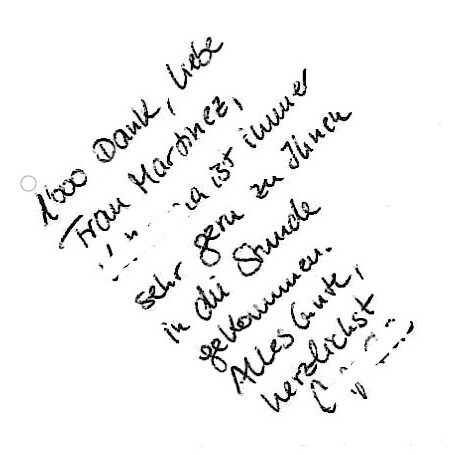 1000 Dank, liebe
Frau Martinez,
ist immer
sehr gern zu Ihnen
in die Stunde
gekommen.
Alles Gute,
herzlichst